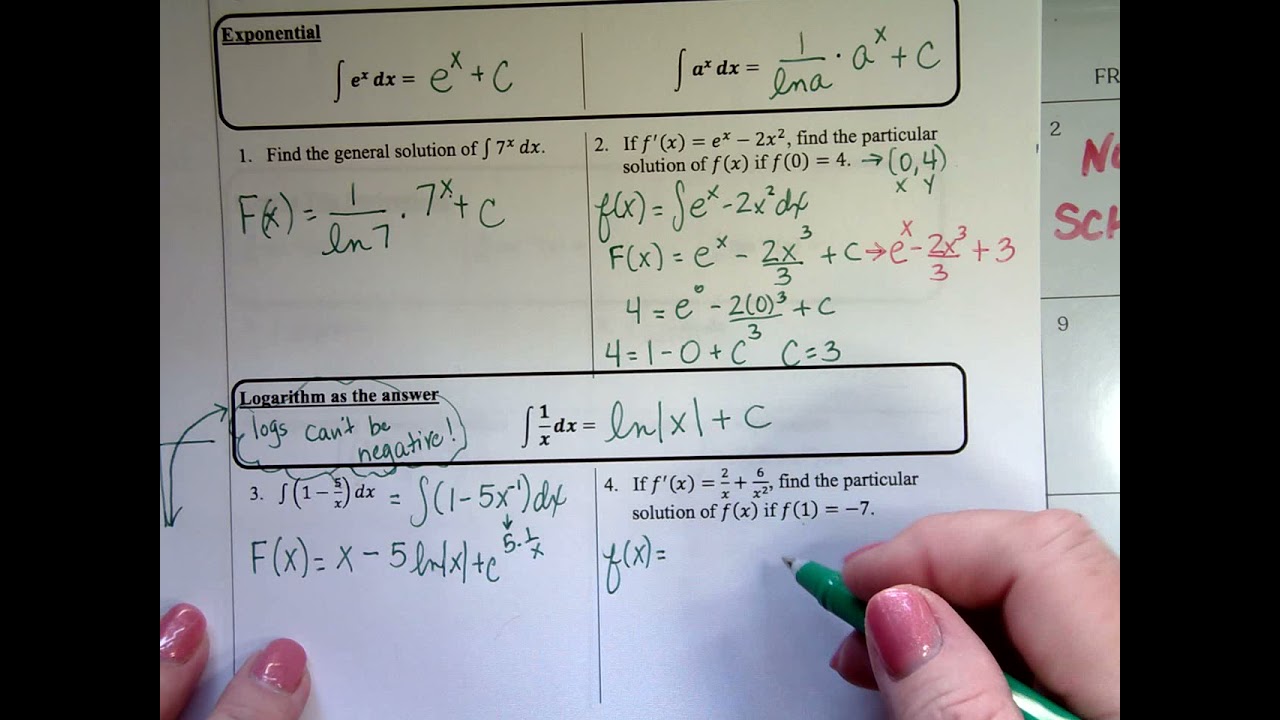 Exponential
∫ eˣ dx = eˣ + C
∫ aˣ dx = 1/ln a · aˣ + C
1. Find the general solution of ∫ 7ˣ dx.
F(x) = 1/ln 7 · 7ˣ + C
2. If f′(x) = eˣ − 2x², find the particular
solution of f(x) if f(0) = 4. → (0,4)
x y
f(x) = ∫eˣ − 2x² dx
F(x) = eˣ − 2x³/3 + C → eˣ − 2x³/3 + 3
4 = e⁰ − 2(0)³/3 + C
4 = 1 − 0 + C C = 3
Logarithm as the answer
logs can't be
negative!
∫ 1/x dx = ln|x| + C
3. ∫(1 − 5/x) dx = ∫(1 − 5x⁻¹)dx
5 · 1/x
F(x) = x − 5 ln|x| + C
4. If f′(x) = 2/x + 6/x², find the particular
solution of f(x) if f(1) = −7.
f(x) =
FR
2
9